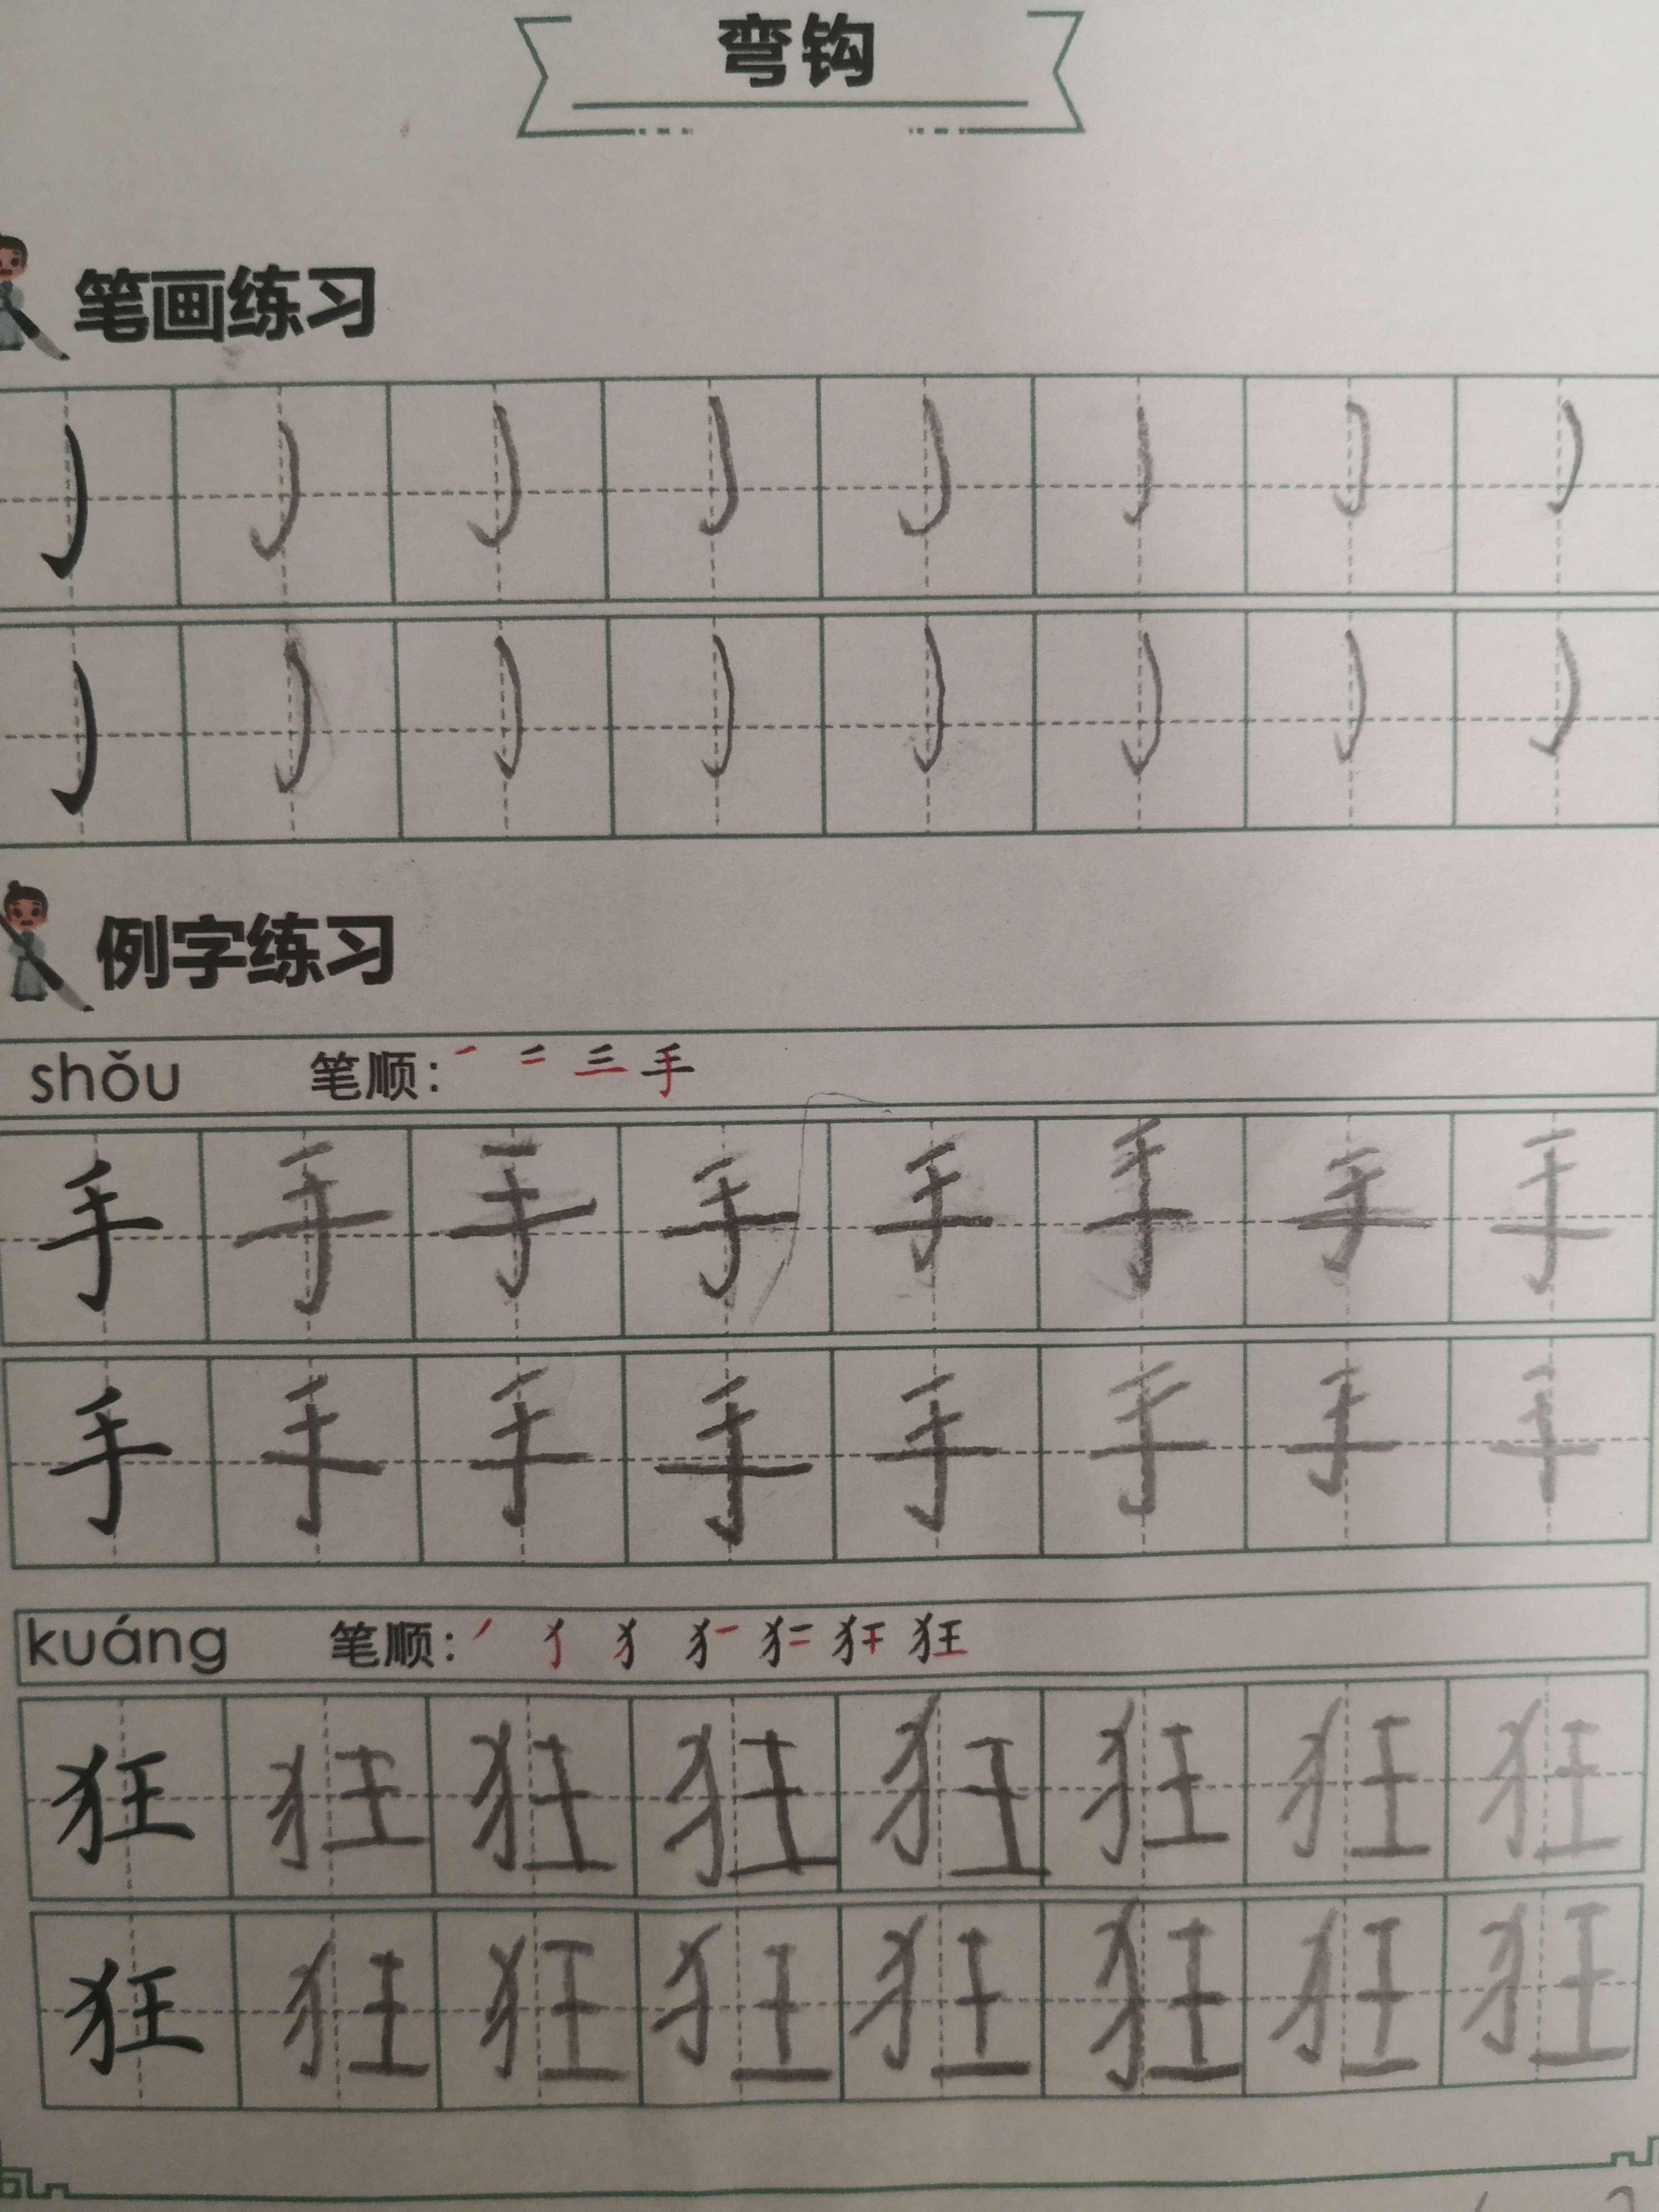 弯钩
笔画练习
例字练习
shǒu 笔顺: 手
手 手 手 手 手 手 手 手
手 手 手 手 手 手 手 手
kuáng 笔顺: 狂
狂 狂 狂 狂 狂 狂 狂 狂
狂 狂 狂 狂 狂 狂 狂 狂